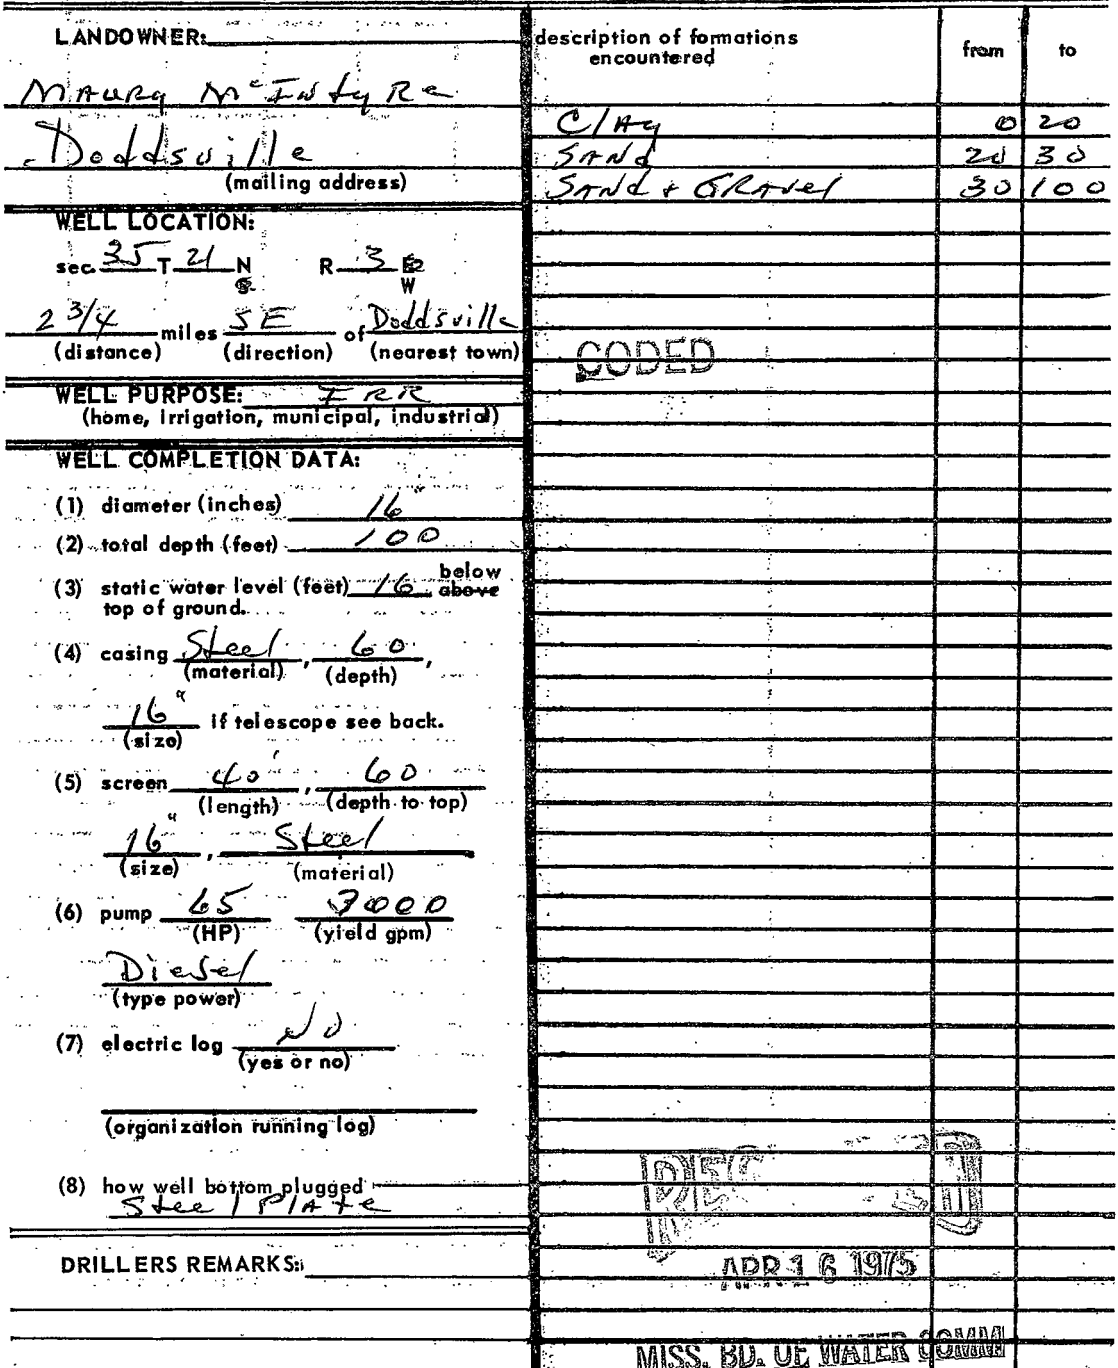 LANDOWNER:
Maury McIntyRe
Doddsville
(mailing address)
WELL LOCATION:
sec. 35 T 21 N R 3
S. W
2 3/4 miles SE of Doddsville
(distance) (direction) (nearest town)
WELL PURPOSE: IRR
(home, irrigation, municipal, industrial)
WELL COMPLETION DATA:
(1) diameter (inches) 16"
(2) total depth (feet) 100
(3) static water level (feet) 16 below
above
top of ground.
(4) casing Steel, 60,
(material) (depth)
16" if telescope see back.
(size)
(5) screen 40', 60
(length) (depth to top)
16", Steel
(size) (material)
(6) pump 65 3000
(HP) (yield gpm)
Diesel
(type power)
(7) electric log No
(yes or no)
(organization running log)
(8) how well bottom plugged
Steel Plate
DRILLERS REMARKS:
description of formations
encountered
from to
Clay 0 20
Sand 20 30
Sand & Gravel 30 100
CODED
APR 16 1975
MISS. BD. OF WATER COMM